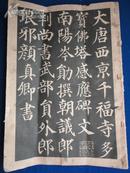 大唐西京千福寺多
寳佛塔感應碑文
南陽岑勛撰朝議郎
判尚書武部員外郎
琅邪顏真卿書